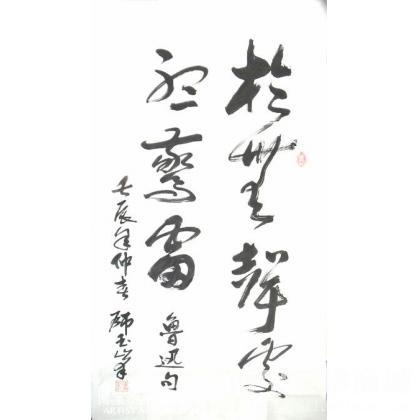 於無聲處
聽驚雷
魯迅句
壬辰年仲春 師玉峰